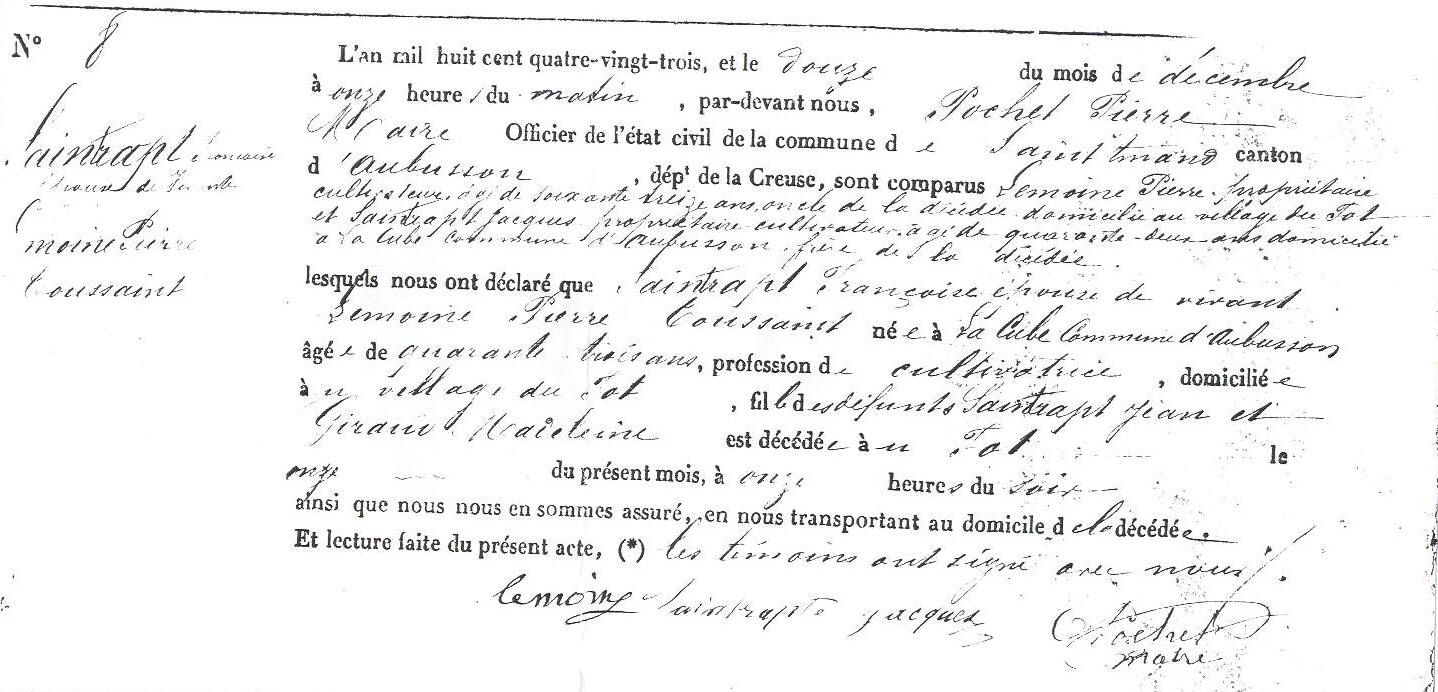 N° 8
Saintrapt Francoise
épouse de
Lemoine Pierre
Toussaint
L'an mil huit cent quatre-vingt-trois, et le douze du mois de décembre
à onze heures du matin, par-devant nous, Pochet Pierre
Maire Officier de l'état civil de la commune de Saint Amand canton
d'Aubusson, dépt de la Creuse, sont comparus Lemoine Pierre, propriétaire
cultivateur, agé de soixante treize ans, oncle de la décédée domicilié au village du Tot
et Saintrapt Jacques propriétaire cultivateur, agé de quarante-deux ans domicilié
à La Cube commune d'Aubusson, frère de la décédée.
lesquels nous ont déclaré que Saintrapt Françoise épouse de vivant
Lemoine Pierre Toussaint née à La Cube Commune d'Aubusson
âgée de quarante trois ans, profession de cultivatrice, domiciliée
à u village du Tot, fille des défunts Saintrapt Jean et
Giraud Madeleine est décédée à u Tot le
onze du présent mois, à onze heures du soir
ainsi que nous nous en sommes assuré, en nous transportant au domicile de la décédée.
Et lecture faite du présent acte, (*) les témoins ont signé avec nous.
Lemoine Saintrapt Jacques Pochet
maire